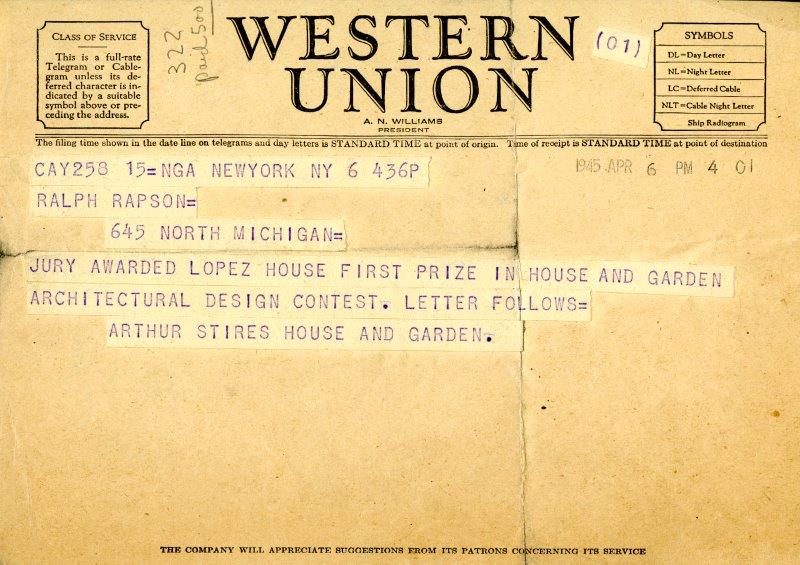 CLASS OF SERVICE
This is a full-rate
Telegram or Cable-
gram unless its de-
ferred character is in-
dicated by a suitable
symbol above or pre-
ceding the address.
322
paid 500
WESTERN
UNION
A. N. WILLIAMS
PRESIDENT
(01)
SYMBOLS
DL=Day Letter
NL=Night Letter
LC=Deferred Cable
NLT=Cable Night Letter
Ship Radiogram
The filing time shown in the date line on telegrams and day letters is STANDARD TIME at point of origin. Time of receipt is STANDARD TIME at point of destination
CAY258 15=NGA NEWYORK NY 6 436P
1945 APR 6 PM 4 01
RALPH RAPSON=
645 NORTH MICHIGAN=
JURY AWARDED LOPEZ HOUSE FIRST PRIZE IN HOUSE AND GARDEN
ARCHITECTURAL DESIGN CONTEST. LETTER FOLLOWS=
ARTHUR STIRES HOUSE AND GARDEN.
THE COMPANY WILL APPRECIATE SUGGESTIONS FROM ITS PATRONS CONCERNING ITS SERVICE